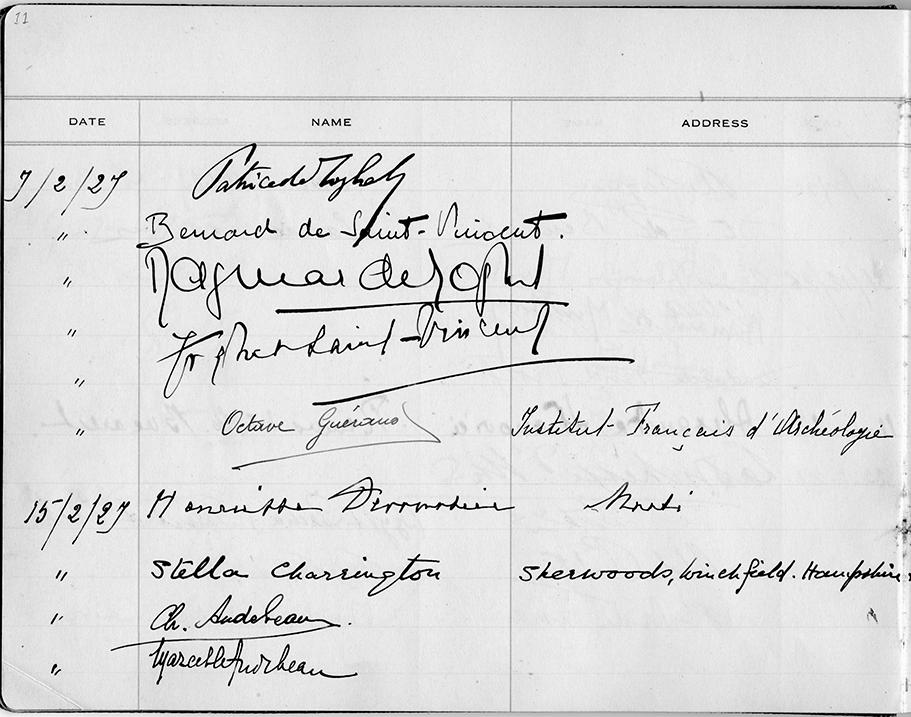 11
DATE NAME ADDRESS
7/2/27 Patrice de
" Bernard de Saint-Vincent.
" Dagmar de
" Saint-Vincent
"
" Octave Guéraud Institut Français d'Archéologie
15/2/27 Henriette Devonshire Maadi
" Stella Charrington Sherwoods, Winchfield. Hampshire
" Ch. Audebeau.
" Marcelle Audebeau